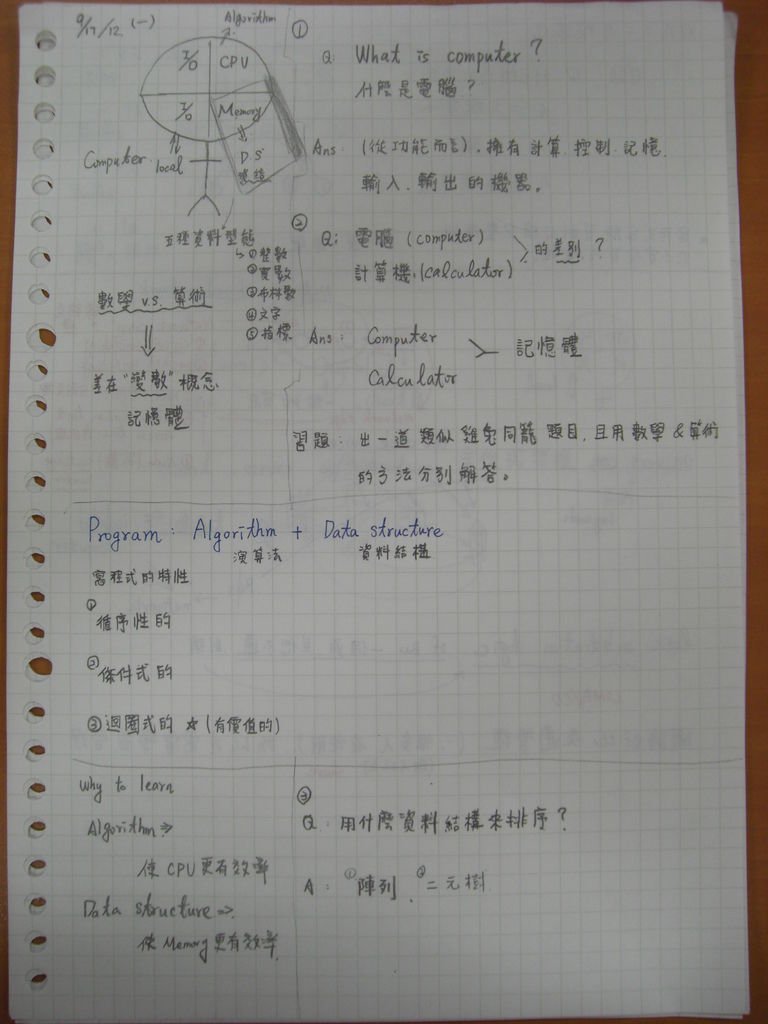 9/17/12. (一)
Algorithm
I/O CPU
I/O Memory
Computer local
D S
五種資料型態
①整數
②實數
③布林數
④文字
⑤指標
數學 v.s. 算術
差在"變數"概念
記憶體
①
Q: What is computer?
什麼是電腦?
Ans: (從功能而言), 擁有計算.控制.記憶.
輸入.輸出的機器。
②
Q: 電腦 (computer)
計算機.(calculator)
的差別?
Ans: Computer
Calculator
記憶體
習題: 出一道類似雞兔同籠題目,且用數學&算術
的方法分別解答。
Program: Algorithm + Data structure
演算法 資料結構
寫程式的特性
①循序性的
②條件式的
③迴圈式的 ☆ (有價值的)
Why to learn
Algorithm⇒
使 CPU 更有效率
Data structure⇒
使 Memory 更有效率.
③
Q: 用什麼資料結構來排序?
A: ①陣列. ②二元樹